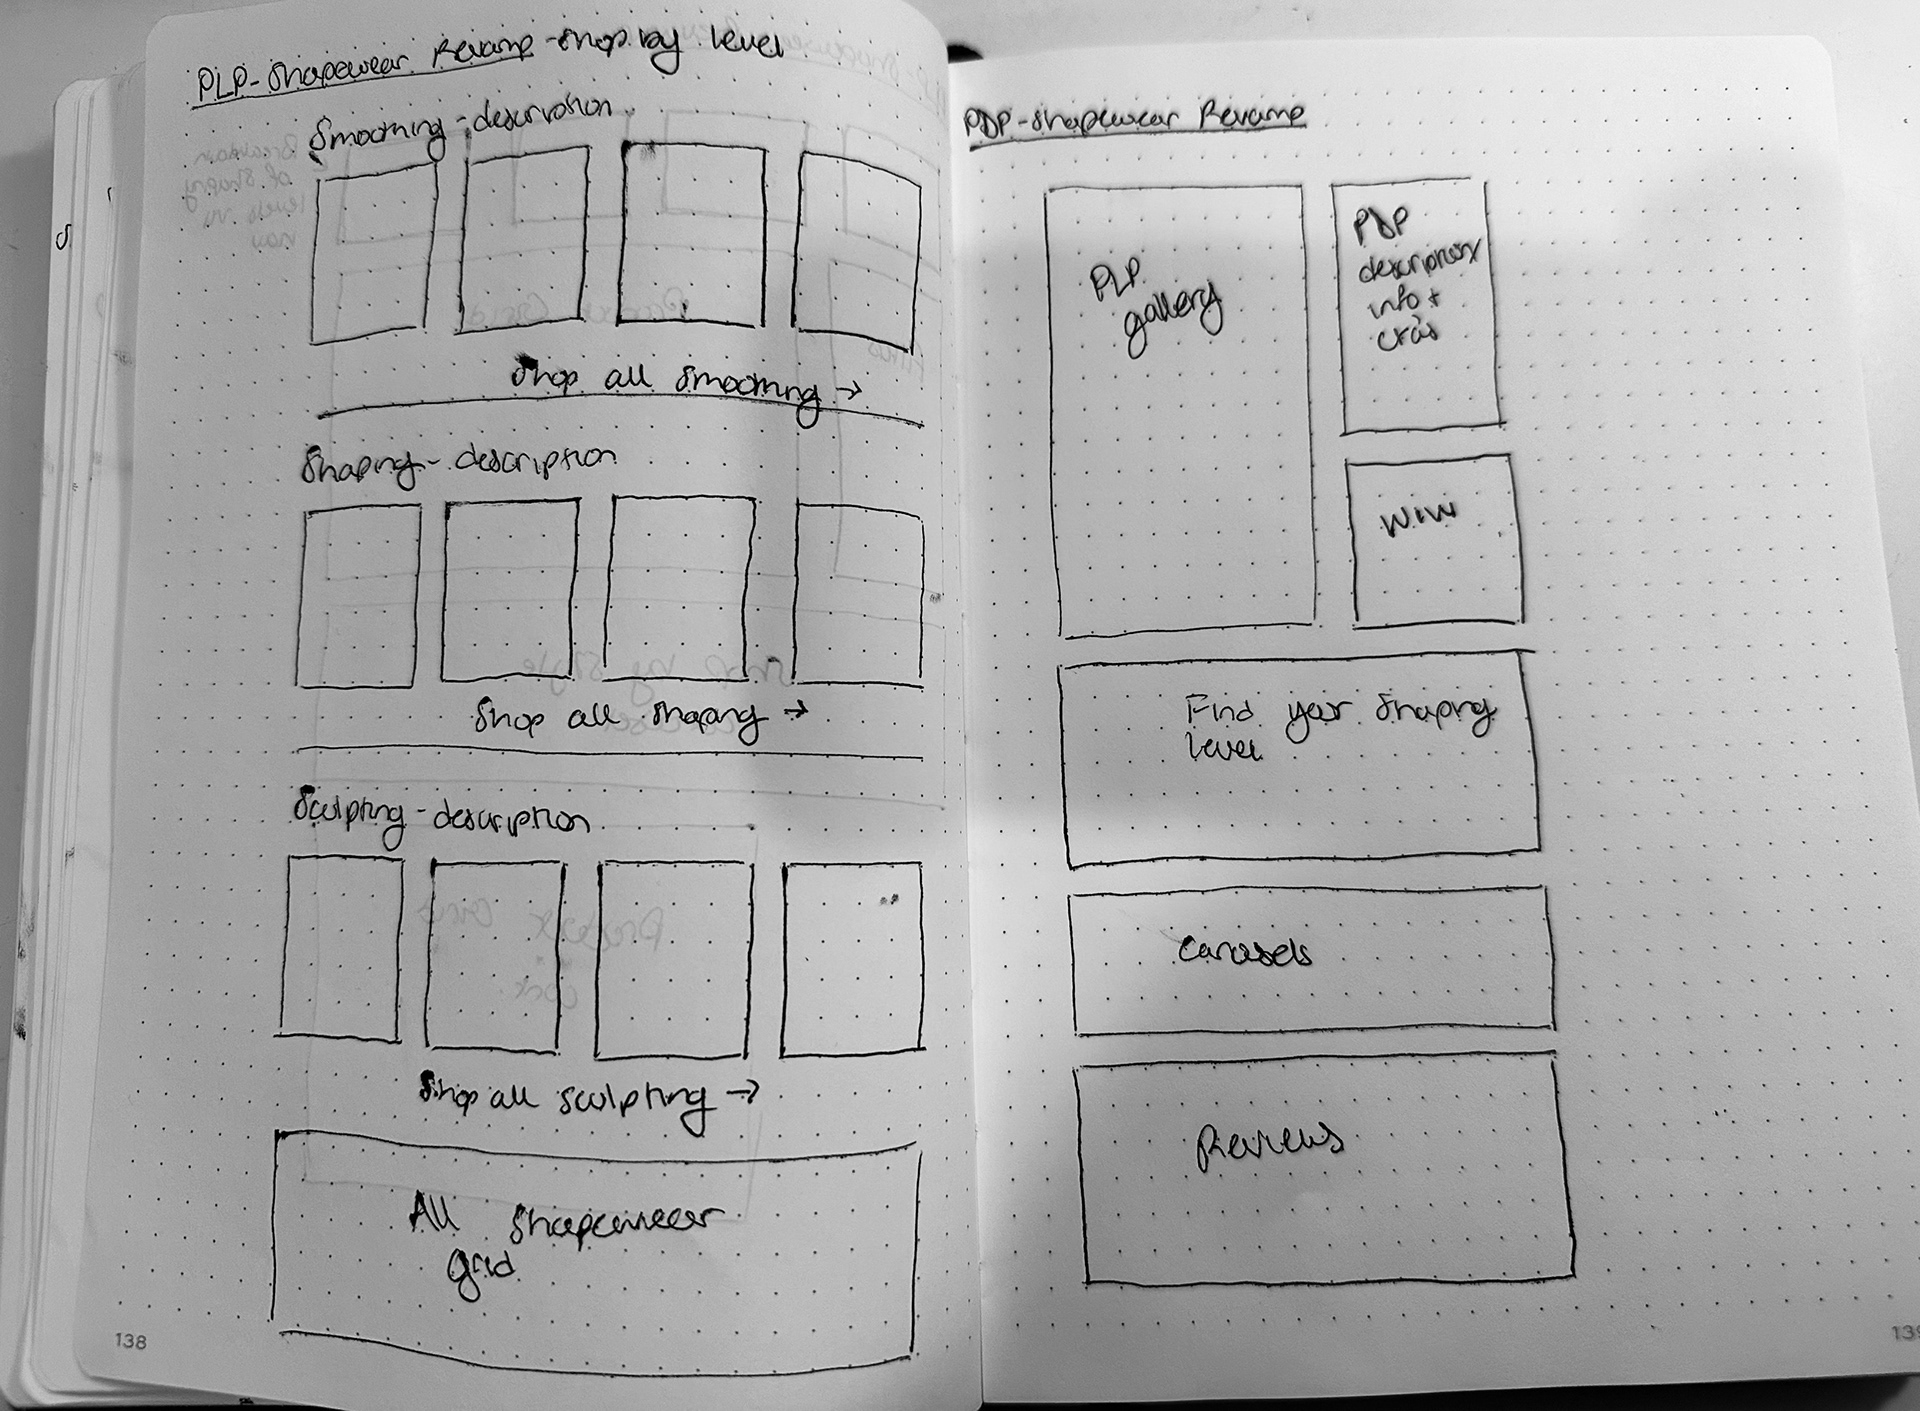 PLP-Shapewear Revamp-shop by level
Smoothing-description
Shop all Smoothing →
Shaping-description
Shop all shaping →
Sculpting-description
Shop all sculpting →
All shapewear
grid
138
PDP-Shapewear Revamp
PLP
gallery
PDP
description
info +
WIW
Find your shaping
level
Carousels
Reviews
139